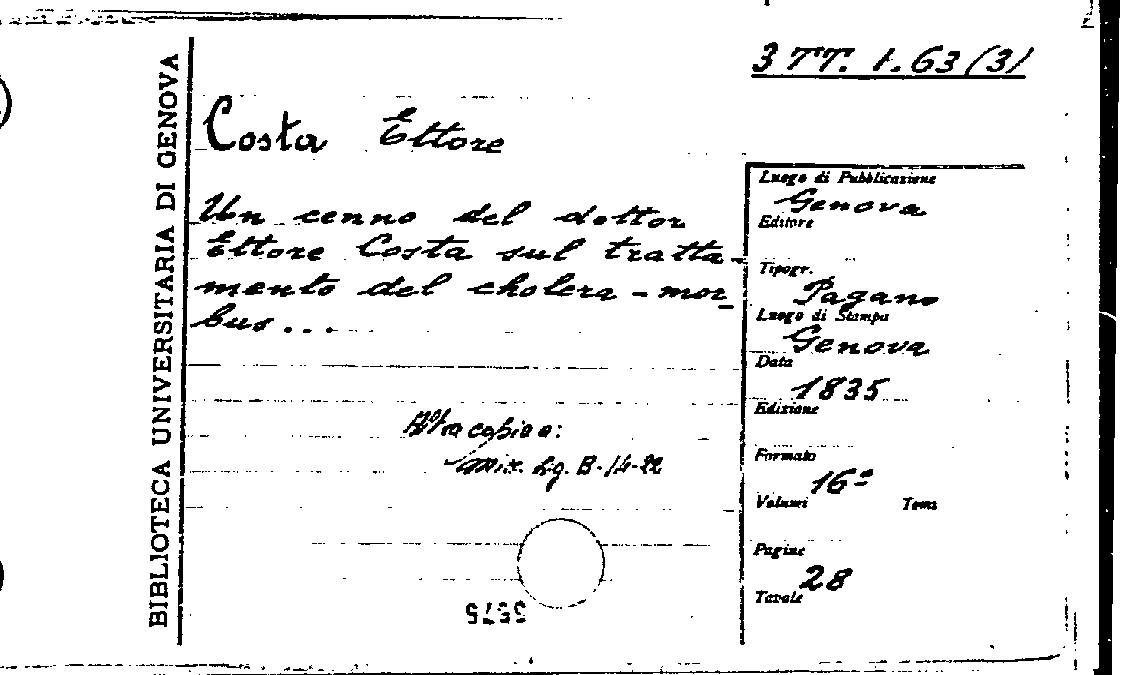 BIBLIOTECA UNIVERSITARIA DI GENOVA
3 TT. 1.63 (3)
Costa Ettore
Un cenno del dottor
Ettore Costa sul tratta-
mento del cholera-mor_
bus...
Altra copia a:
Mix. Lig. B-14-22
Luogo di Pubblicazione
Genova
Editore
Tipogr.
Pagano
Luogo di Stampa
Genova
Data
1835
Edizione
Formato
16º
Volumi Tomi
Pagine
28
Tavole